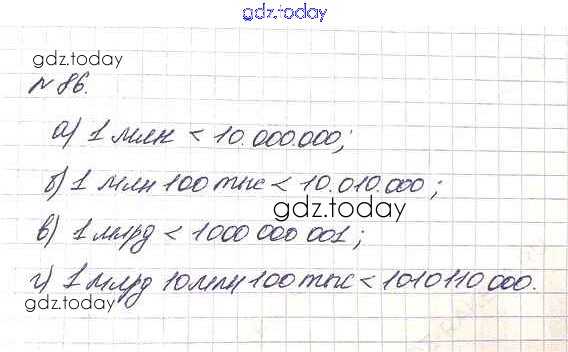 gdz.today
gdz.today
№ 86.
а) 1 млн < 10.000.000;
б) 1 млн 100 тыс < 10.010.000;
gdz.today
в) 1 млрд < 1000 000 001;
г) 1 млрд 10 млн 100 тыс < 1010110 000.
gdz.today
gdz.today